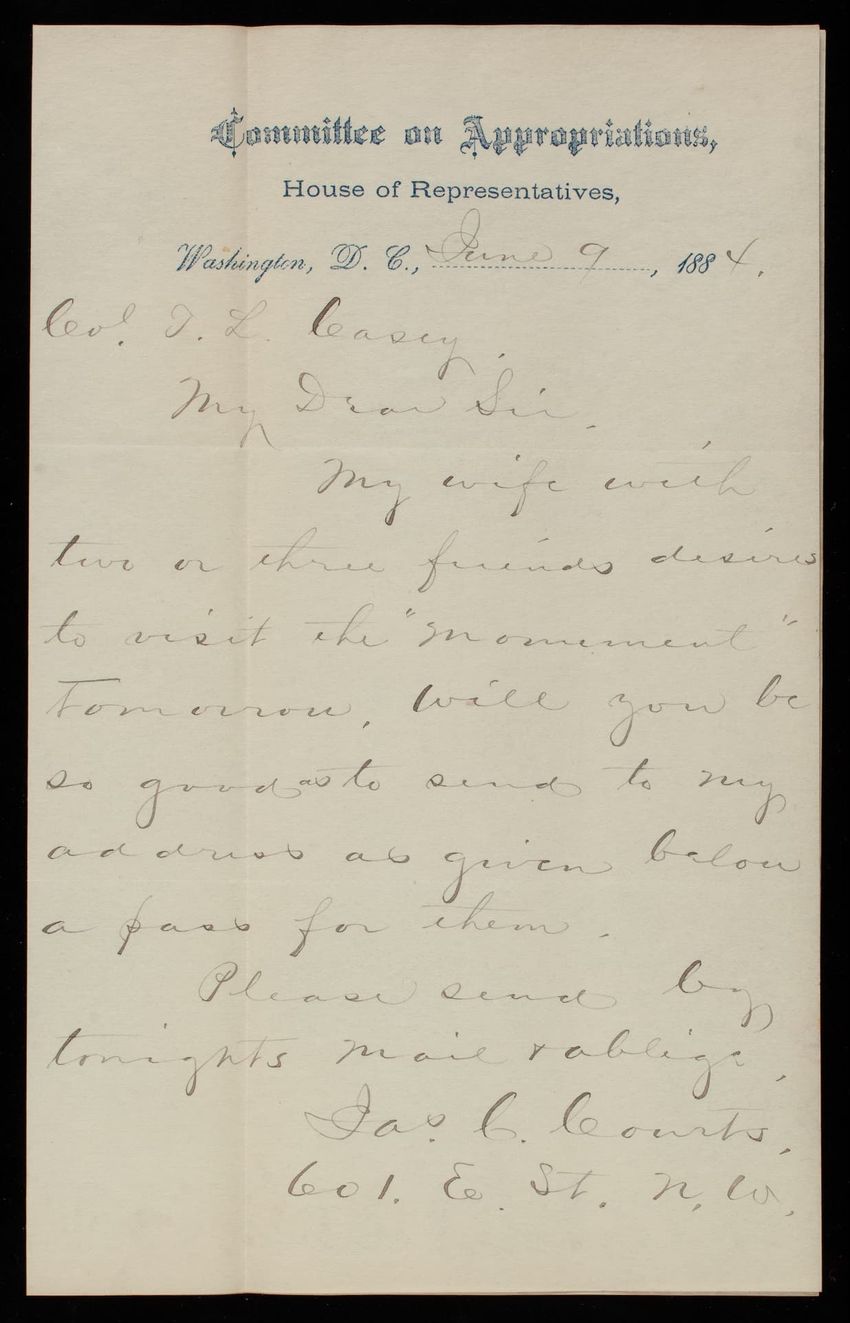 Committee on Appropriations,
House of Representatives,
Washington, D. C., June 9, 1884.
Col. T. L. Casey.
My Dear Sir.
My wife with
two or three friends desires
to visit the "Monument"
tomorrow, Will you be
so good as to send to my
address as given below
a pass for them.
Please send by
tonights mail & oblige,
Jas. C. Courts,
601. E. St. N. W.